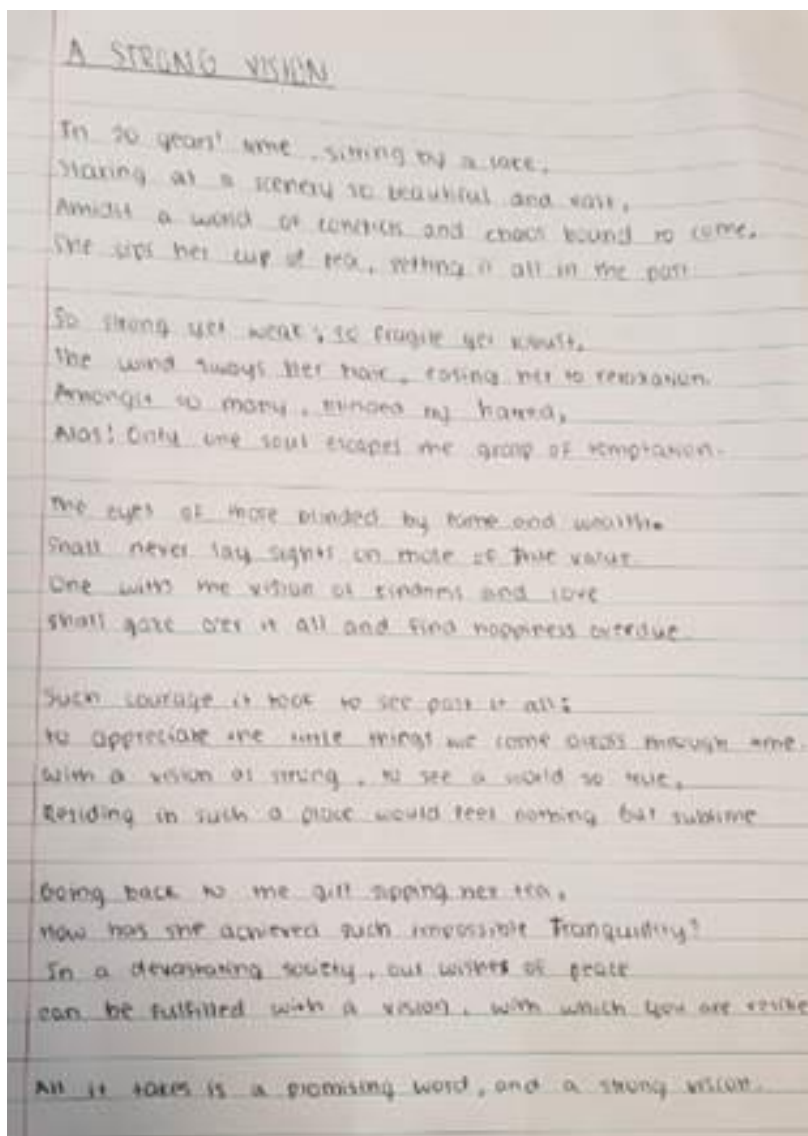 A STRONG VISION
In 20 years' time, sitting by a lake,
Staring at a scenery so beautiful and vast,
Amidst a world of conflicts and chaos bound to come,
She sips her cup of tea, setting it all in the past.
So strong yet weak; so fragile yet robust,
The wind sways her hair, easing her to relaxation.
Amongst so many, blinded by hatred,
Alas! Only one soul escapes the grasp of temptation.
The eyes of those blinded by fame and wealth
Shall never lay sights on those of true value
One with the vision of kindness and love
shall gaze over it all and find happiness overdue
Such courage it took to see past it all;
to appreciate the little things we come across through time.
With a vision as strong, to see a world so true,
Residing in such a place would feel nothing but sublime
Going back to the girl sipping her tea,
How has she achieved such impossible Tranquility?
In a devastating society, our wishes of peace
can be fulfilled with a vision, with which you are
All it takes is a promising word, and a strong vision.